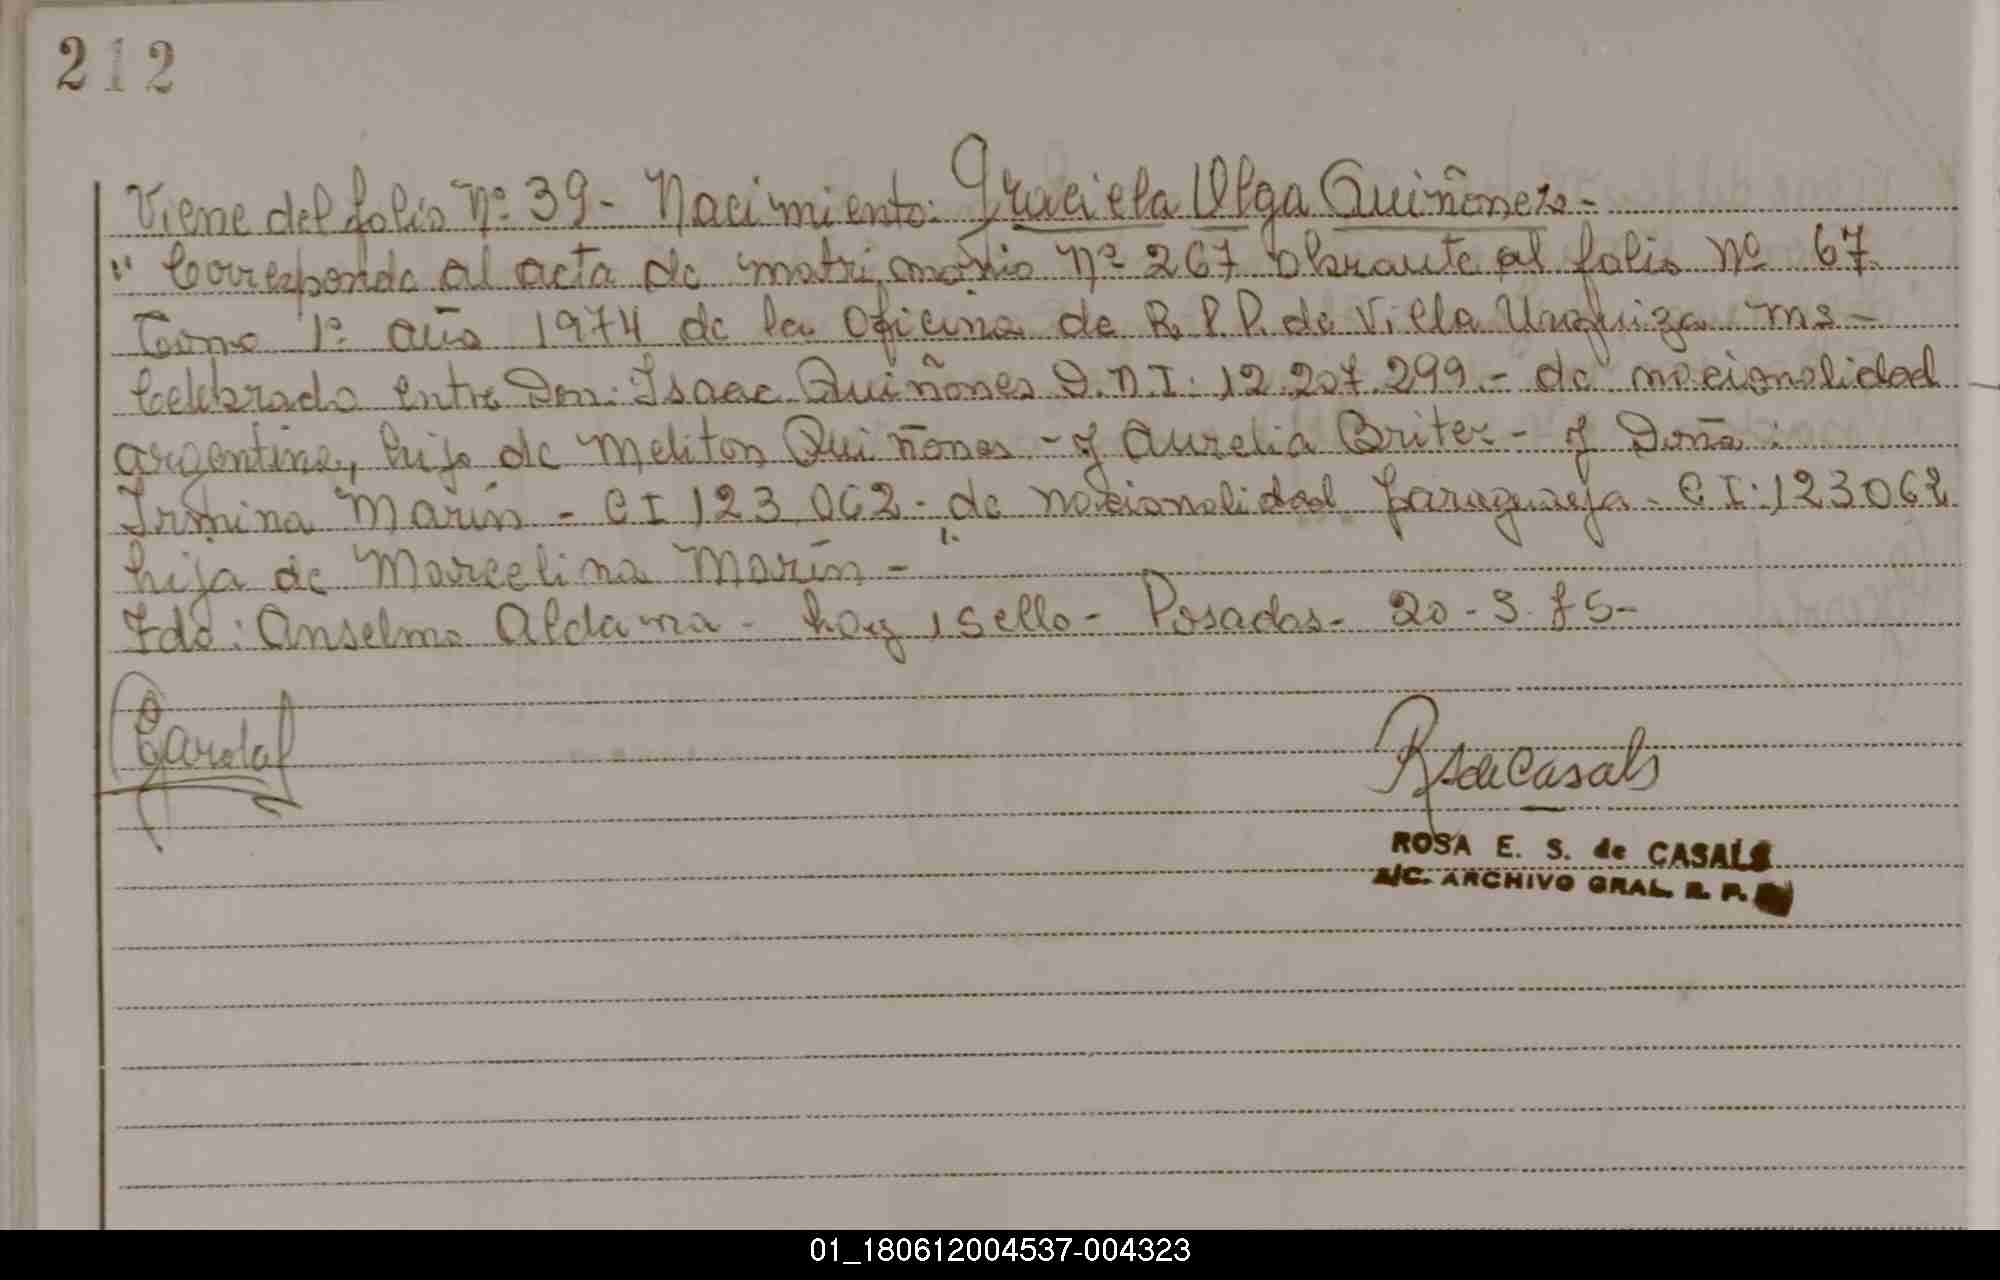 212
Viene del folio Nº 39 - Nacimiento: Graciela Olga Quiñonez -
" Corresponde al acta de matrimonio Nº 267 obrante al folio Nº 67
Tomo 1º año 1974 de la Oficina de R. P. P. de Villa Urquiza ms -
Celebrado entre Don: Isaac Quiñones D.N.I: 12.207.299 - de nacionalidad
argentina, hijo de Meliton Quiñones - y Aurelia Britez - y Doña:
Irmina Marin - CI 123 062 - de nacionalidad paraguaya - CI: 123062
hija de Marcelina Marín - "
Fdo: Anselmo Aldama - hay 1 sello - Posadas - 20 - 3 - 75 -
RSdeCasals
ROSA E. S. de CASALS
A/C. ARCHIVO GRAL. R. P.
01_180612004537-004323